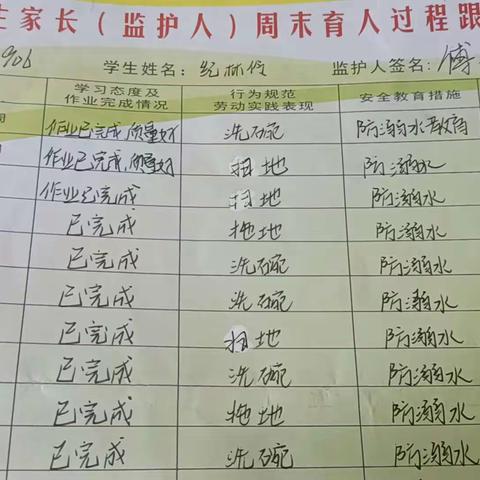 主家长（监护人）周末育人过程跟
906 学生姓名：纪林伶 监护人签名：傅
学习态度及
作业完成情况 行为规范
劳动实践表现 安全教育措施
作业已完成,质量好 洗碗 防溺水教育
作业已完成,质量好 扫地 防溺水
作业已完成 扫地 防溺水
已完成 拖地 防溺水
已完成 洗碗 防溺水
已完成 洗碗 防溺水
已完成 扫地 防溺水
已完成 洗碗 防溺水
已完成 拖地 防溺水
已完成 洗碗 防溺水